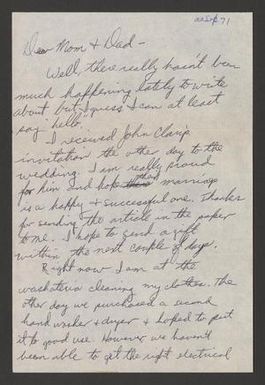 22 Sep 71
Dear Mom & Dad -
Well, there really hasn't been
much happening lately to write
about but I guess I can at least
say hello.
I received John Clair's
invitation the other day to the
wedding. I am really proud
for him and hope their marriage
is a happy & successful one. Thanks
for sending the article in the paper
to me. I hope to send a gift
within the next couple of days.
Right now I am at the
washateria cleaning my clothes. The
other day we purchased a second
hand washer & dryer & hoped to put
it to good use. However we haven't
been able to get the right electrical